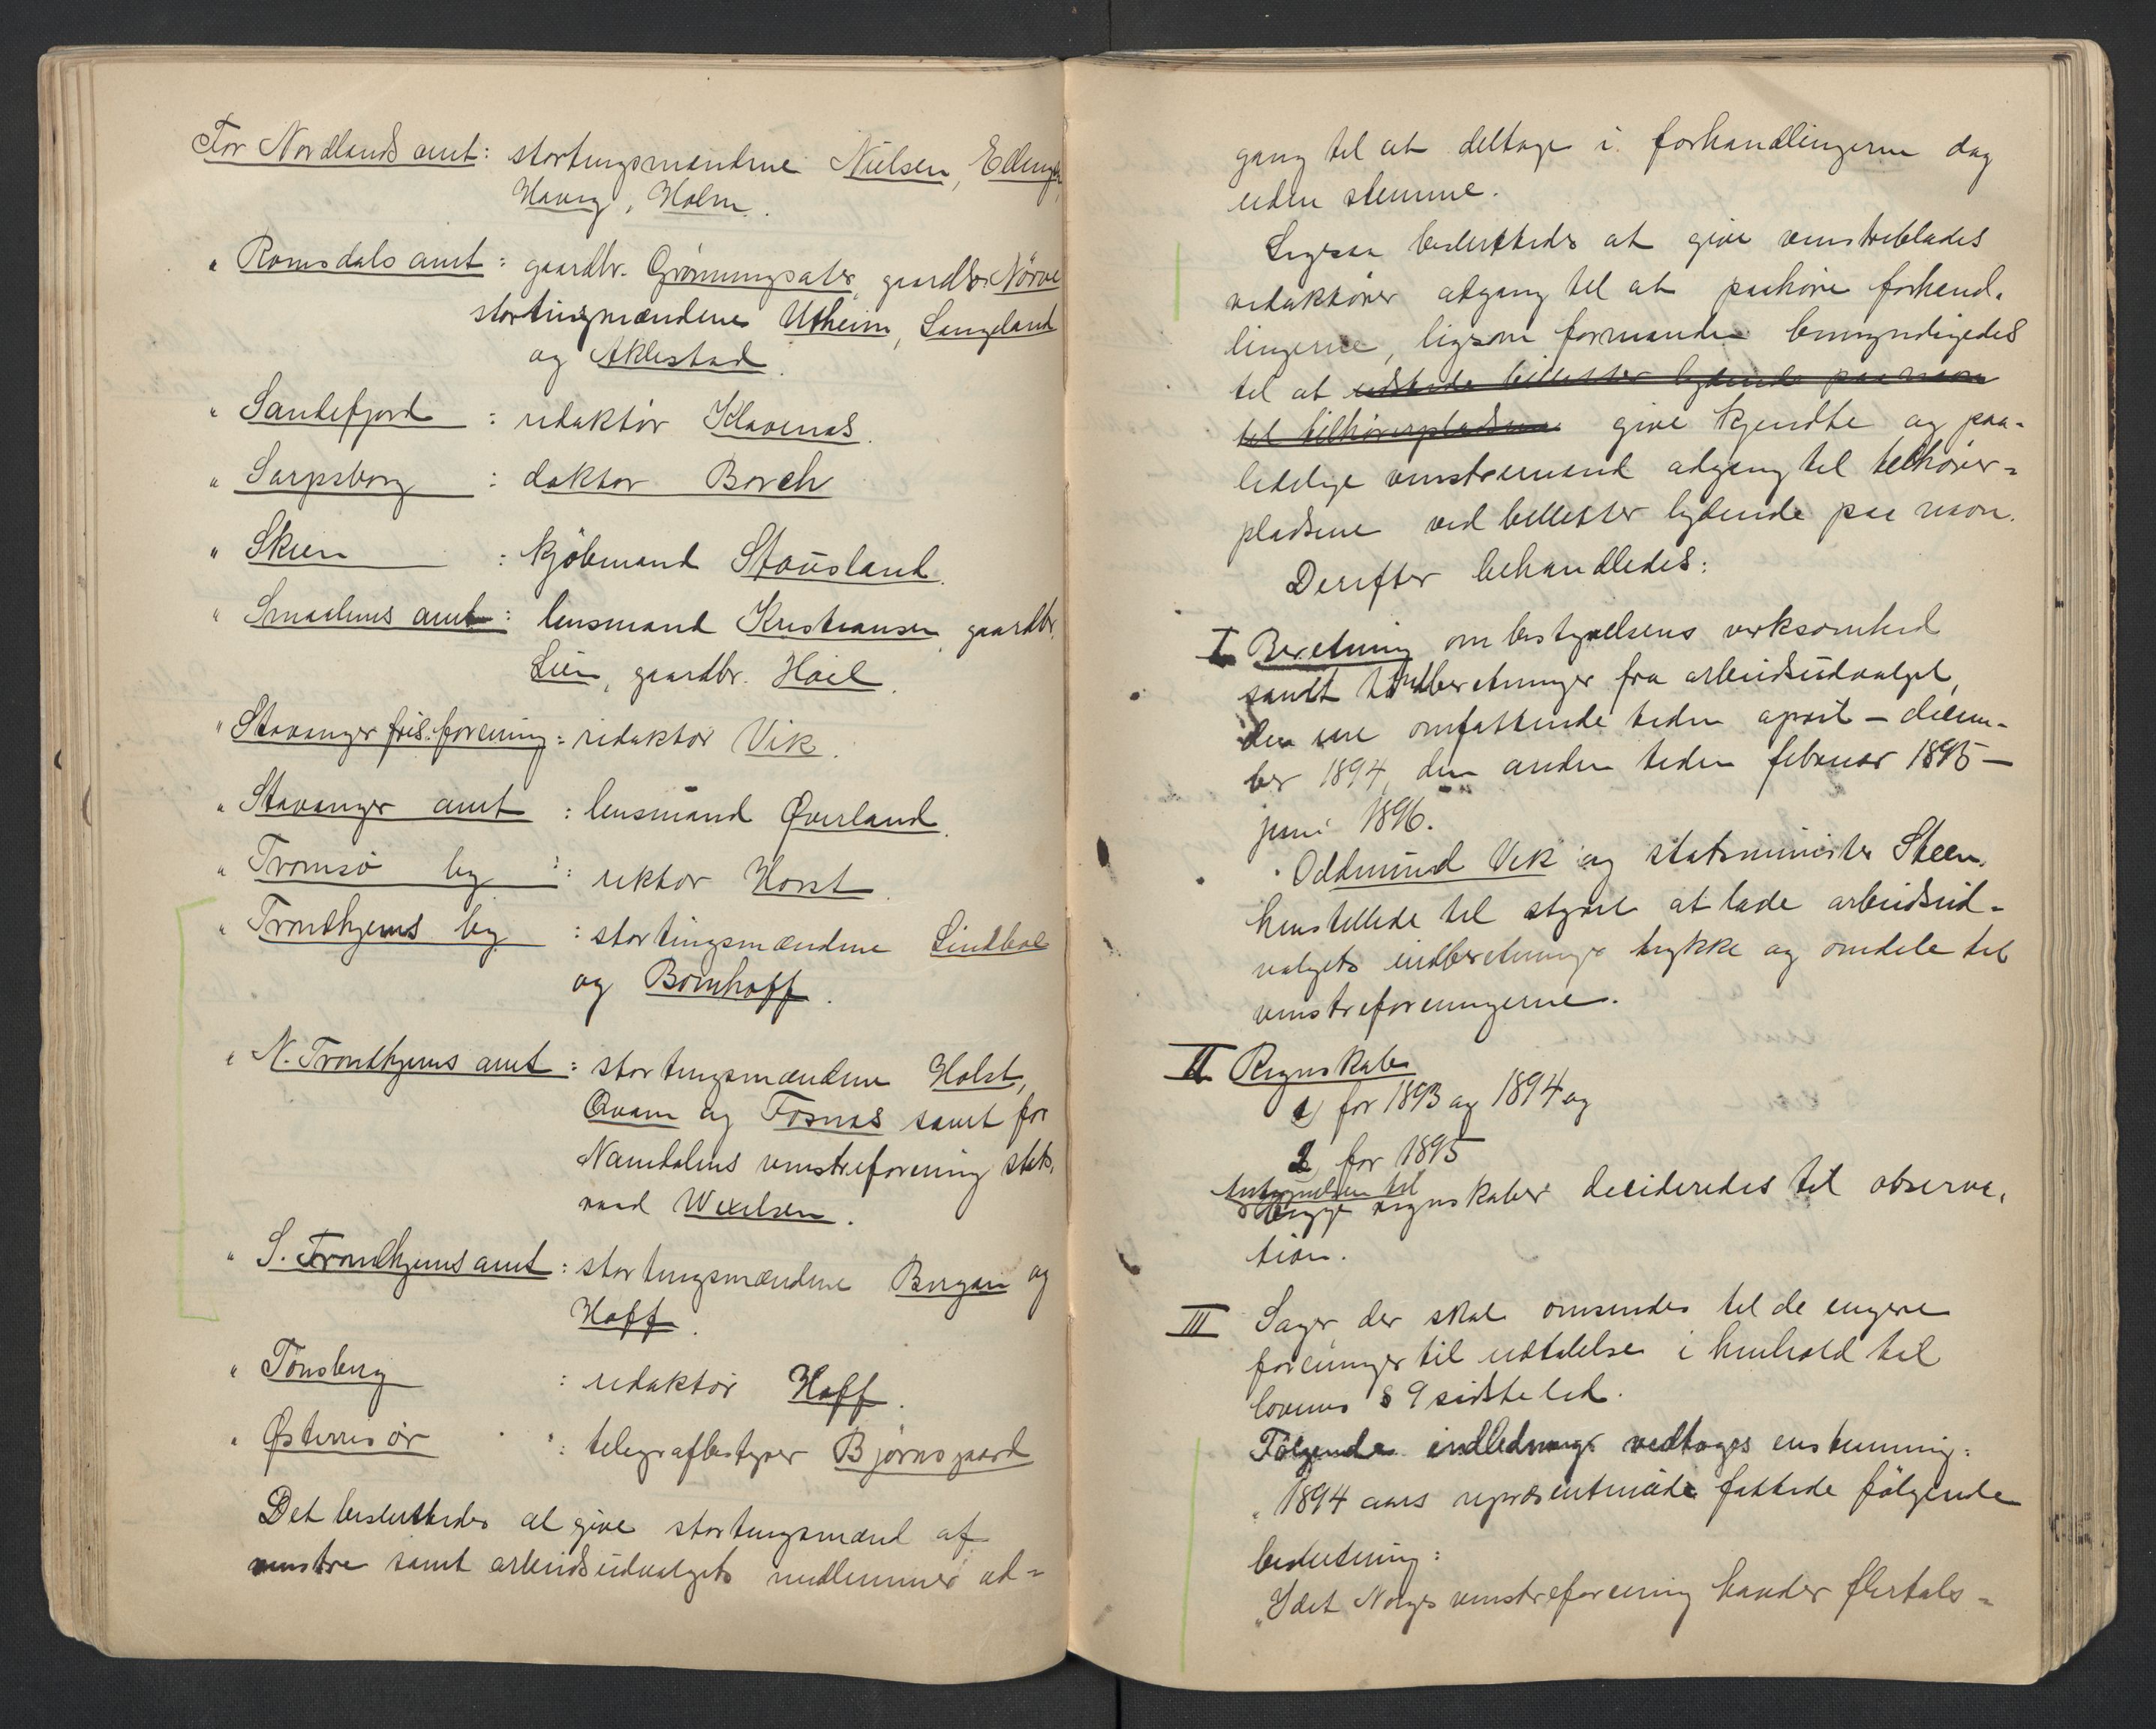 For Nordlands amt: stortingsmændene Nielsen,
Havig, Holm.
" Romsdals amt: gaardbr. Grønningsæter, gaardbr. Nörve
stortingsmændene Utheim, Langeland
og Aklestad.
" Sandefjord : redaktör Klavenæs.
" Sarpsborg : doktor Borch
" Skien : kjöbmand Stousland.
" Smaalenes amt: lensmand Kristiansen, gaardbr.
Lien, gaardbr.
" Stavanger fris. forening: redaktör Vik.
" Stavanger amt : lensmand Øverland.
" Tromsö by : rektor Horst.
" Trondhjems by : stortingsmændene Lindboe
og Bomhoff.
" N. Trondhjems amt: stortingsmændene Holst,
Qvam og Fosnæs samt for
Namdalens venstreforening stats-
raad Wexelsen.
" S. Trondhjems amt: stortingsmændene Bergan og
Hoff.
" Tönsberg : redaktör Hoff.
" Østerrisör : telegrafbestyrer Björnsgaard
Det besluttedes at give stortingsmænd af
venstre samt arbeidsudvalgets medlemmer ad-
gang til at deltage i forhandlingerne dog
uden stemme.
Ligesaa besluttedes at give venstreblades
redaktörer adgang til at paahöre forhand-
lingerne, ligesom formanden bemyndigedes
til at udstede billetter lydende paa navn
til tilhörerpladsene give kjendte og paa-
lidelige venstremænd adgang til tilhörer-
pladsene ved billetter lydende paa navn.
Derefter behandledes:
I Beretning om bestyrelsens virksomhed
samt indberetninger fra arbeidsudvalget,
den ene omfattende tiden april - decem-
ber 1894, den anden tiden februar 1895 -
juni 1896.
Oddmund Vik og statsminister Steen
henstillede til styret at lade arbeidsud-
valgets indberetninger trykke og omdele til
venstreforeningerne.
II Regnskaber
1) for 1893 og 1894 og
2) for 1895
Antegnelsen til
begge regnskaber decideredes til observa-
tion.
III Sager, der skal omsendes til de engere
foreninger til udtalelse i henhold til
lovenes § 9 sidste led.
Fölgende indledning vedtoges enstemmig:
"1894 aars repræsentmöde fattede fölgende
beslutning:
"Idet Norges venstreforening hævder flertals-